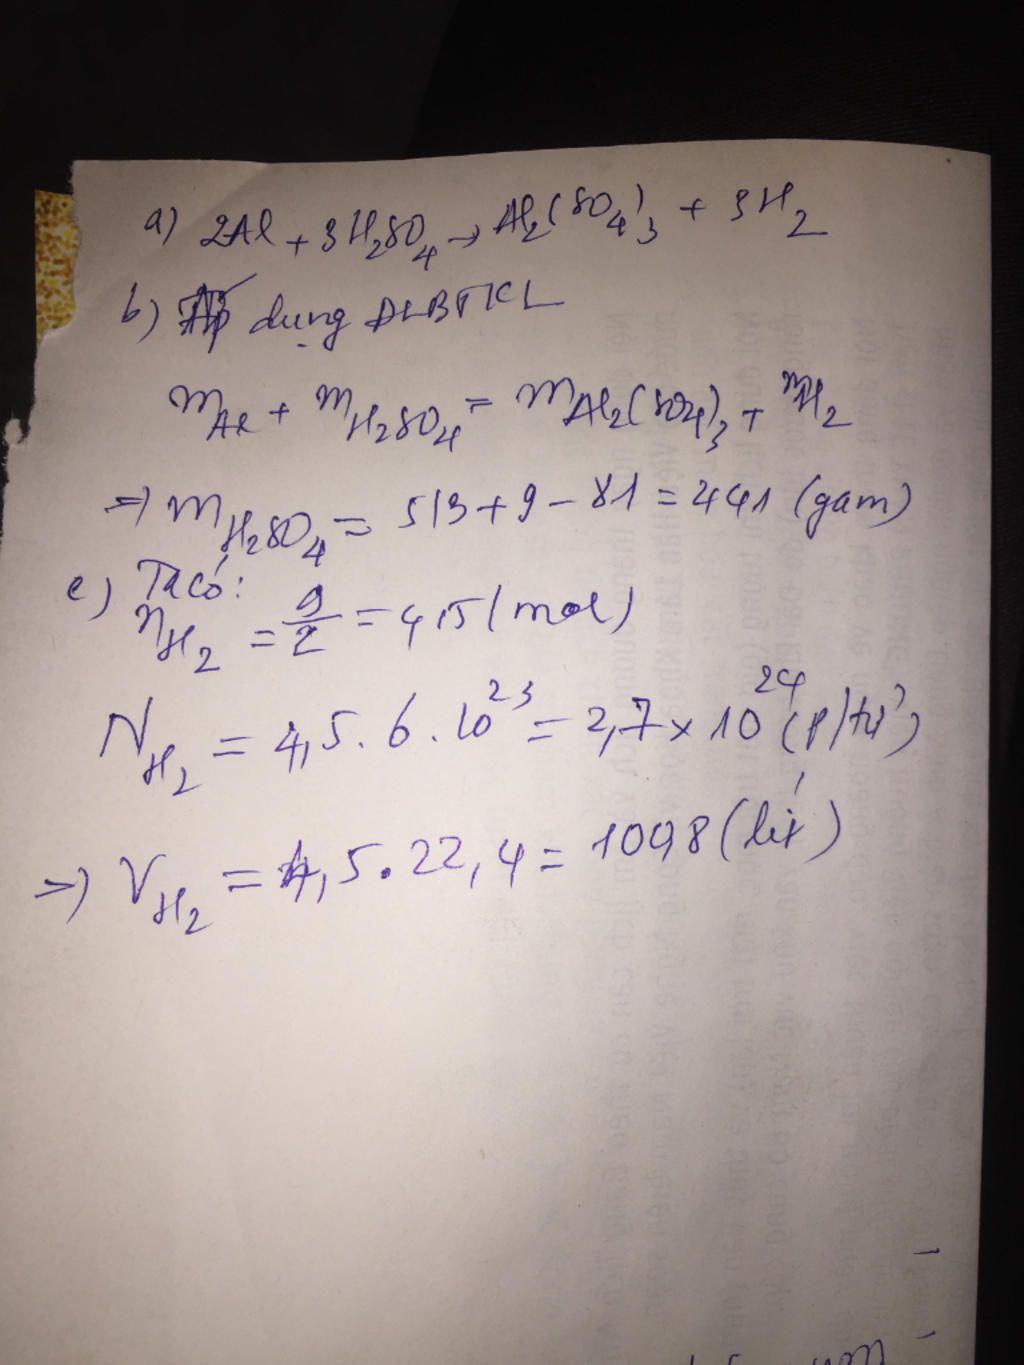 a) 2Al + 3H₂SO₄ → Al₂(SO₄)₃ + 3H₂
b) Áp dụng ĐLBTKL
mAl + mH₂SO₄ = mAl₂(SO₄)₃ + mH₂
=> mH₂SO₄ = 513 + 9 - 81 = 441 (gam)
c) Ta có:
nH₂ = 9/2 = 4,5 (mol)
NH₂ = 4,5 . 6 . 10²³ = 2,7 x 10²⁴ (p/tử)
=> VH₂ = 4,5 . 22,4 = 100,8 (lít)